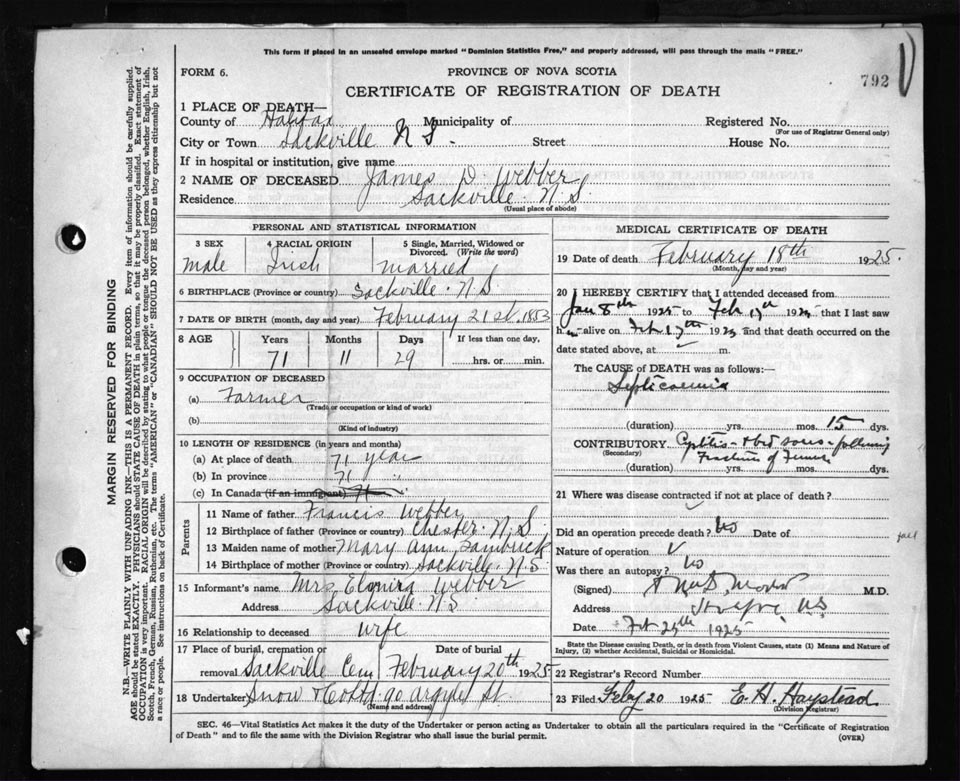 This form if placed in an unsealed envelope marked "Dominion Statistics Free," and properly addressed, will pass through the mails "FREE."
FORM 6.
PROVINCE OF NOVA SCOTIA
792
CERTIFICATE OF REGISTRATION OF DEATH
1 PLACE OF DEATH—
County of Halifax Municipality of Registered No.
(For use of Registrar General only)
City or Town Sackville N S. Street House No.
If in hospital or institution, give name
2 NAME OF DECEASED James D. Webber
Residence Sackville. N.S.
(Usual place of abode)
PERSONAL AND STATISTICAL INFORMATION
3 SEX 4 RACIAL ORIGIN 5 Single, Married, Widowed or Divorced. (Write the word)
Male Irish married
6 BIRTHPLACE (Province or country) Sackville. N.S
7 DATE OF BIRTH (month, day and year) February 21st. 1853
8 AGE Years Months Days If less than one day,
71 11 29 hrs. or min.
9 OCCUPATION OF DECEASED
(a) Farmer
(Trade or occupation or kind of work)
(b)
(Kind of industry)
10 LENGTH OF RESIDENCE (in years and months)
(a) At place of death 71 year
(b) In province 71 "
(c) In Canada (if an immigrant)
Parents
11 Name of father Francis Webber
12 Birthplace of father (Province or country) Chester. N.S
13 Maiden name of mother Mary Ann
14 Birthplace of mother (Province or country) Sackville. N.S
15 Informant's name Mrs Elmira Webber
Address Sackville. N S
16 Relationship to deceased wife
17 Place of burial, cremation or removal Date of burial
Sackville Cem February 20th 1925
18 Undertaker Snow & Co Ltd 90 Argyle St.
(Name and address)
MEDICAL CERTIFICATE OF DEATH
19 Date of death February 18th 1925.
(Month, day and year)
20 I HEREBY CERTIFY that I attended deceased from
Jan 8th 1925 to Feb 17th 1925 that I last saw
him alive on Feb 17th 1925 and that death occurred on
date stated above, at m.
The CAUSE of DEATH was as follows:—
Septicaemia
(duration) yrs. mos. 15 dys.
CONTRIBUTORY Cystitis - Bed sores - following
(Secondary) Fracture of Femur
(duration) yrs. mos. dys.
21 Where was disease contracted if not at place of death?
Did an operation precede death? No Date of
Nature of operation
Was there an autopsy? No
(Signed) M.D.
Address
Date Feb 1925
State the Disease causing Death, or in death from Violent Causes, state (1) Means and Nature of Injury, (2) whether Accidental, Suicidal or Homicidal.
22 Registrar's Record Number
23 Filed Feby 20 1925 E. H. Haystead
(Division Registrar)
SEC. 46—Vital Statistics Act makes it the duty of the Undertaker or person acting as Undertaker to obtain all the particulars required in the "Certificate of Registration
of Death" and to file the same with the Division Registrar who shall issue the burial permit.
(OVER)
MARGIN RESERVED FOR BINDING
N.B.—WRITE PLAINLY WITH UNFADING INK—THIS IS A PERMANENT RECORD. Every item of information should be carefully supplied.
AGE should be stated EXACTLY. PHYSICIANS should STATE CAUSE OF DEATH in plain terms, so that it may be properly classified. Exact statement of
OCCUPATION is very important. RACIAL ORIGIN will be described by stating to what people or tongue the deceased person belonged, whether English, Irish,
Scotch, French, German, Russian, Ruthenian, etc. The terms "AMERICAN" or "CANADIAN" SHOULD NOT BE USED as they express citizenship but not
a race or people. See instructions on back of Certificate.